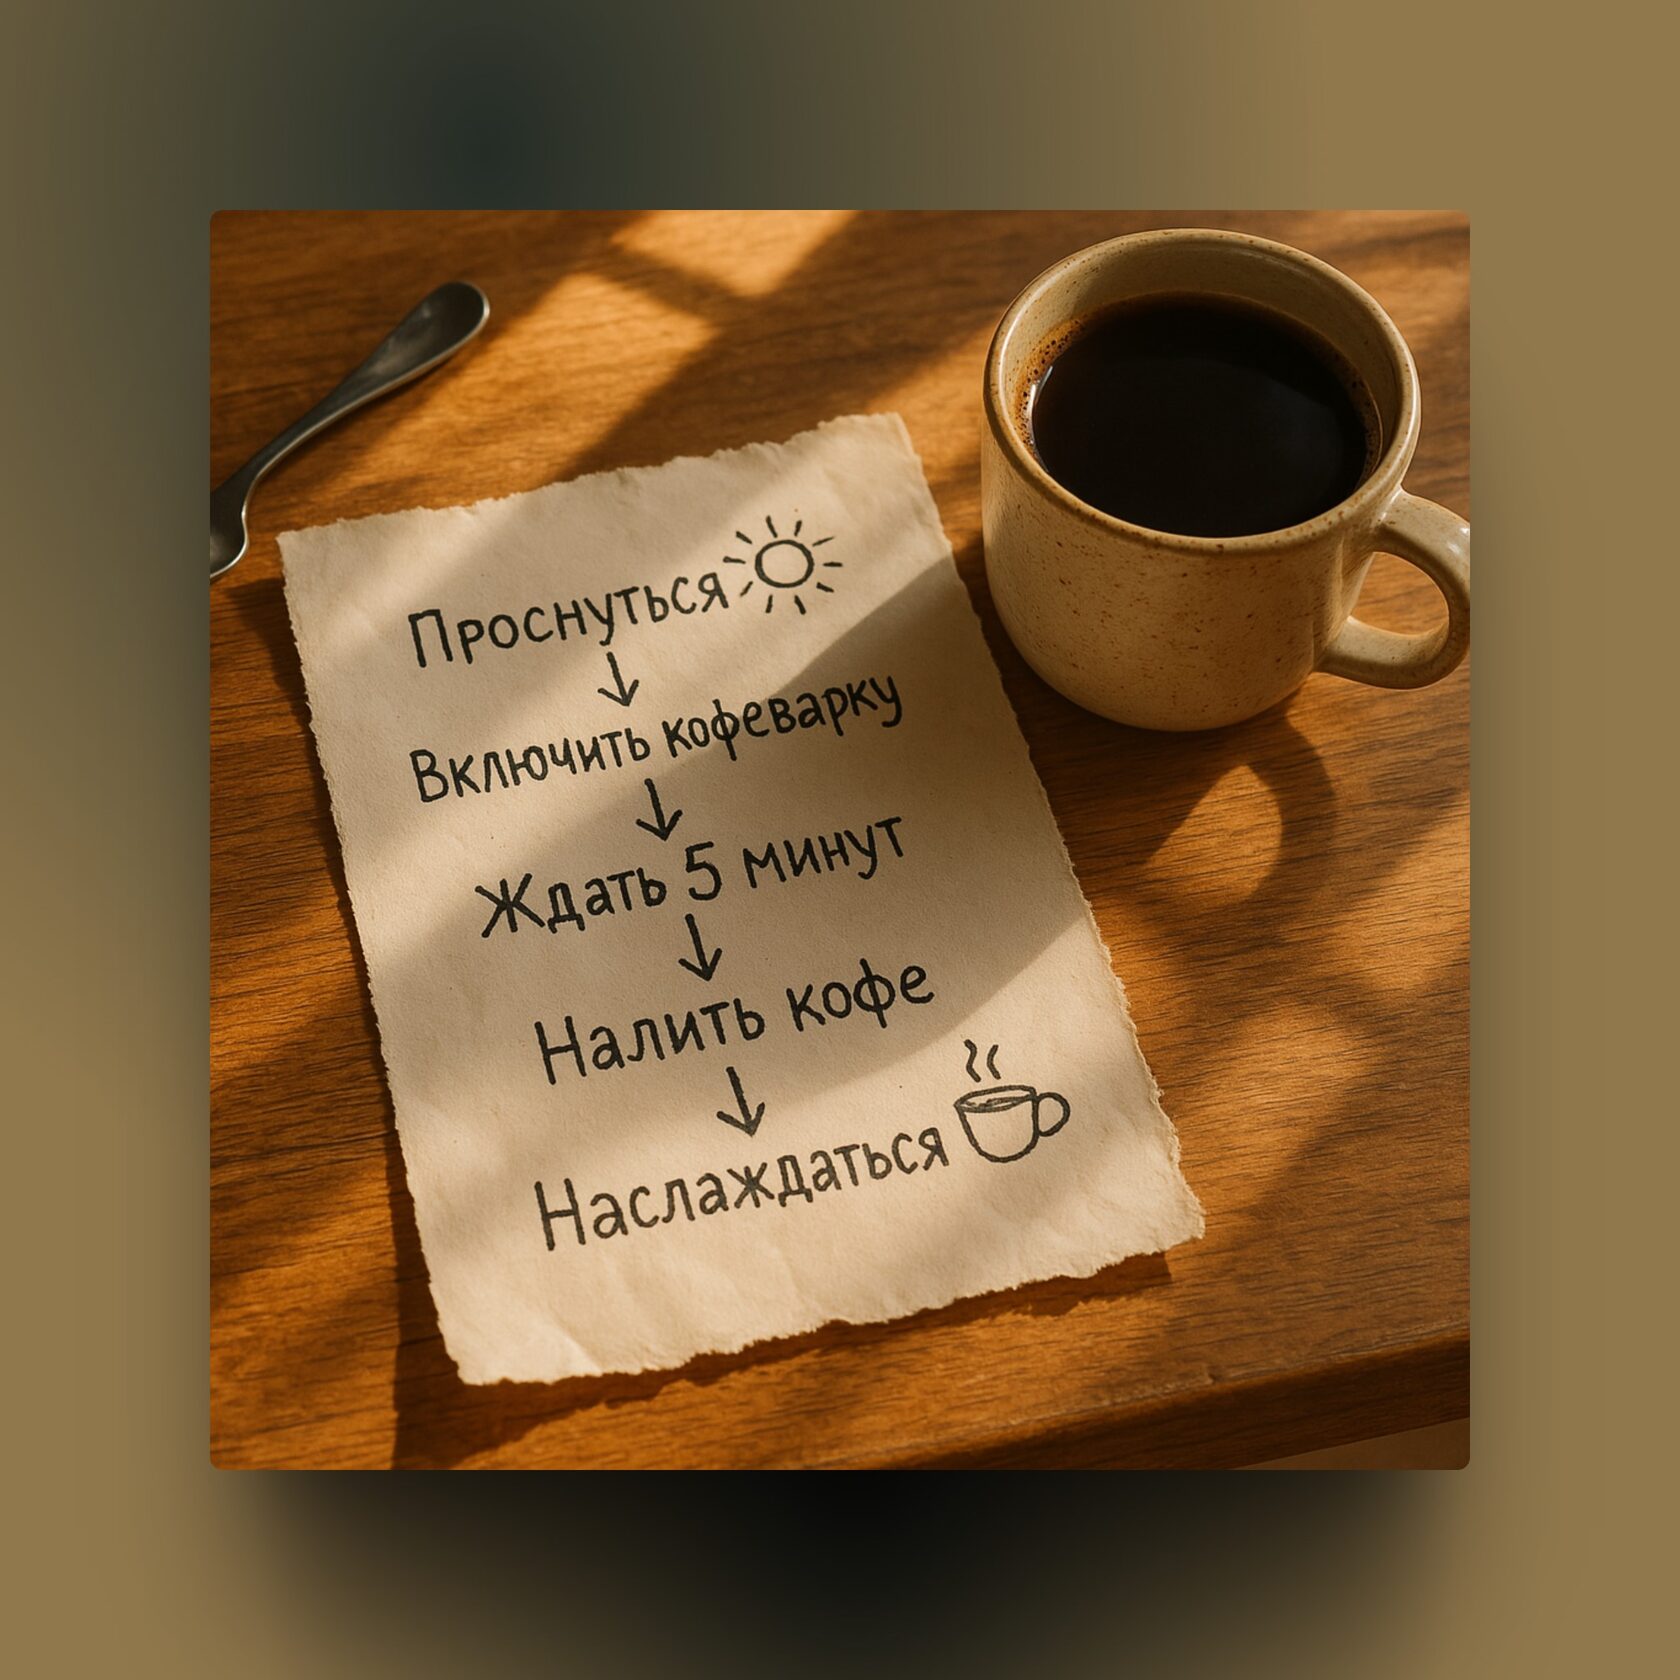 Проснуться
Включить кофеварку
Ждать 5 минут
Налить кофе
Наслаждаться